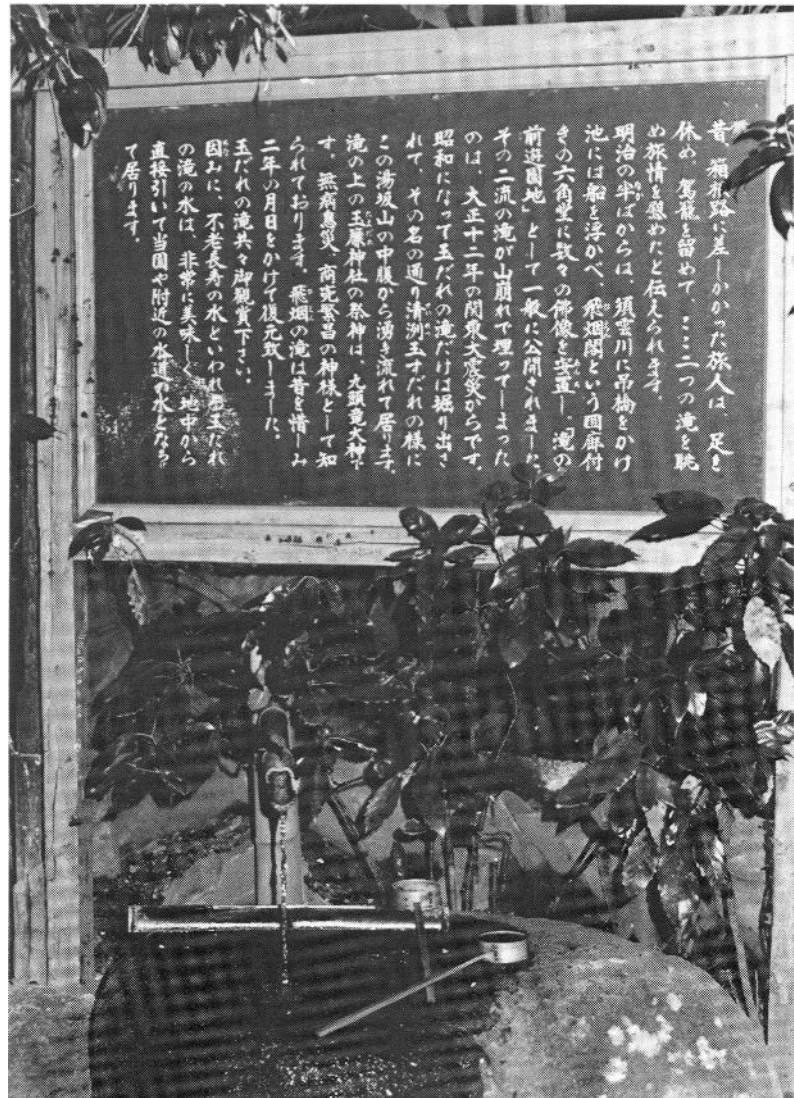 昔、箱根路に差しかかった旅人は、足を
休め、駕籠を留めて、ここ二つの滝を眺
め旅情を慰めたと伝えられます。
明治の半ばからは、須雲川に吊橋をかけ
池には船を浮かべ、飛烟閣という回廊付
きの六角堂に数々の佛像を安置し、「滝の
前遊園地」として一般に公開されました。
その二流の滝が山崩れで埋ってしまった
のは、大正十二年の関東大震災からです。
昭和になって玉だれの滝だけは堀り出さ
れて、その名の通り清冽玉すだれの様に
この湯坂山の中腹から湧き流れて居ります。
滝の上の玉簾神社の祭神は、九頭竜大神で
す。無病息災、商売繁昌の神様として知
られております。飛烟の滝は昔を惜しみ
二年の月日をかけて復元致しました。
玉だれの滝共々御観賞下さい。
因みに、不老長寿の水といわれ玉だれ
の滝の水は、非常に美味しく、地中から
直接引いて当園や附近の水道の水となっ
て居ります。